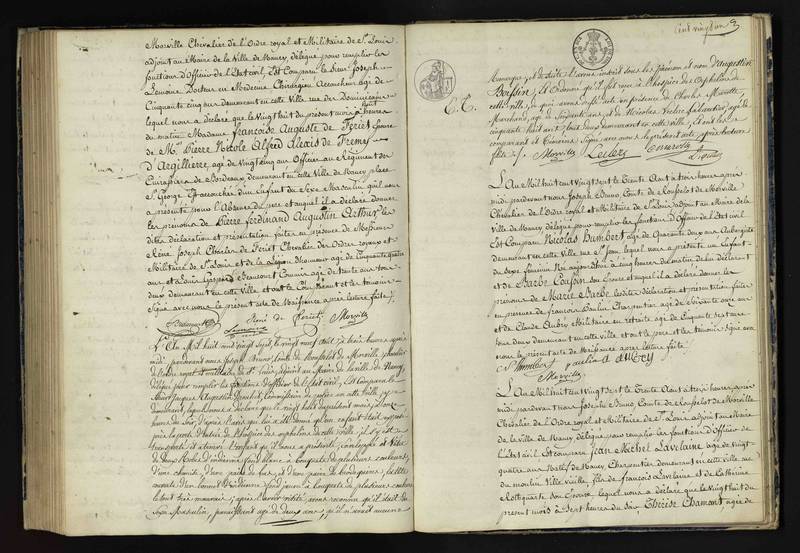 Morville Chevalier de l'Ordre royal et Militaire de St. Louis
adjoint au Maire de la Ville de Nancy, délégué pour remplir les
fonctions d'Officier de l'Etat civil, Est Comparu le Sieur Joseph
Lemoine Docteur en Médecine Chirurgien Accoucheur âgé de
Cinquante cinq ans demeurant en cette Ville rue des Dominicains
lequel nous a déclaré que le Vingt huit du présent mois à heures
du matin Madame Françoise Auguste de Feriet Epouse
de Mr. Pierre Nicole Alfred Alexis de Fremy
d'Argillierre, âgé de Vingt cinq ans Officier au Régiment des
Cuirassiers de Bordeaux demeurant en cette Ville de Nancy place
St. George est accouchée d'un Enfant du Sexe Masculin qu'il nous
a présenté pour l'Absence du père et auquel il a déclaré donner
les prénoms de Pierre Ferdinand Augustin Arthur les
dites déclaration et présentation faites en présence de Messieurs
René Joseph Charles de Feriet Chevalier des Ordres royaux et
Militaire de St. Louis et de la Legion d'honneur âgé de Cinquante quatre
ans et Louis Gaspard Beaucourt Commis âgé de trente ans tous
deux demeurant en cette Ville et ont le Comparant et les témoins
Signé avec nous le présent acte de Naissance après lecture faite
René de Feriet Morville
Lemoine
L'An Mil huit cent vingt sept, le vingt neuf août à trois heures après
midi, pardevant nous Joseph Bruno, Comte de Rousselot de Morville, chevalier
de l'ordre royal et militaire de St. Louis, adjoint au Maire de la ville de Nancy,
délégué pour remplir les fonctions d'officier de l'état civil, Est Comparu le
Sieur Jacques Augustin Commissaire de police en cette Ville, y
demeurant, lequel nous a déclaré que le vingt huit du présent mois, à
heures du soir, d'après l'avis qui lui a été donné qu'un enfant était exposé
près la porte d'entrée de l'hospice des orphelins de cette ville, il s'y est
transporté et a trouvé l'enfant qu'il nous a présenté,
de deux Robes d'indienne fond blanc à bouquets de plusieurs couleurs,
d'une chemise, d'une paire de bas, et d'une paire de la tête
couverte d'un bonnet d'indienne fond jaune à bouquets de plusieurs couleurs
le tout très mauvais; après l'avoir visité, avons reconnu qu'il était du
Sexe Masculin, paraissant âgé de deux ans, qu'il n'avait aucune
cent vingt un
remarque, et de suite l'avons inscrit sous les prénom et nom d'Augustin
Boissin, et Ordonné qu'il fut reçu à l'hospice des Orphelins de
cette ville, ce qui avons déclaré en présence de Charles Marotte
Marchand, âgé de Soixante ans, et de Nicolas Leclerc Fabricant, âgé de
cinquante huit ans, tous deux demeurant en cette ville, et ont les
comparant et témoins Signé avec nous le présent acte, après lecture
faite.
Morville Leclerc
L'An Mil huit cent Vingt sept le Trente Aout à trois heures après
midi pardevant nous Joseph Bruno Comte de Rousselot de Morville
Chevalier de l'Ordre royal et Militaire de St. Louis adjoint au Maire de la
Ville de Nancy délégué pour remplir les fonctions d'Officier de l'Etat civil
Est Comparu Nicolas Humbert âgé de Quarante deux ans Aubergiste
demeurant en cette Ville rue St. Jean lequel nous a présenté un Enfant
du Sexe féminin Né aujourd'hui à cinq heures du matin de lui déclarant
et de Barbe Couson Son Epouse et auquel il a déclaré donner les
prénoms de Marie Barbe lesdites déclaration et présentation faites
en présence de François Paulin Charpentier âgé de Soixante onze ans
et de Claude Aubry Militaire en retraite âgé de Cinquante sept ans
tous deux demeurant en cette Ville et ont le père et les témoins Signé avec
nous le présent acte de Naissance après lecture faite
N. humbert paulin
Morville
L'An Mil huit cent Vingt sept le Trente Aout à trois heures après
midi pardevant nous Joseph Bruno Comte de Rousselot de Morville
Chevalier de l'Ordre royal et Militaire de St. Louis adjoint au Maire
de la Ville de Nancy délégué pour remplir les fonctions d'Officier de
l'Etat civil Est Comparu Jean Michel Lavelaine âgé de Vingt
quatre ans Natif de Nancy Charpentier demeurant en cette Ville rue
du moulin Ville vieille, fils de François Lavelaine et de Catherine
son Epouse, lequel nous a déclaré que le Vingt huit du
présent mois à sept heures du Soir Thérèse Chamant, âgée de